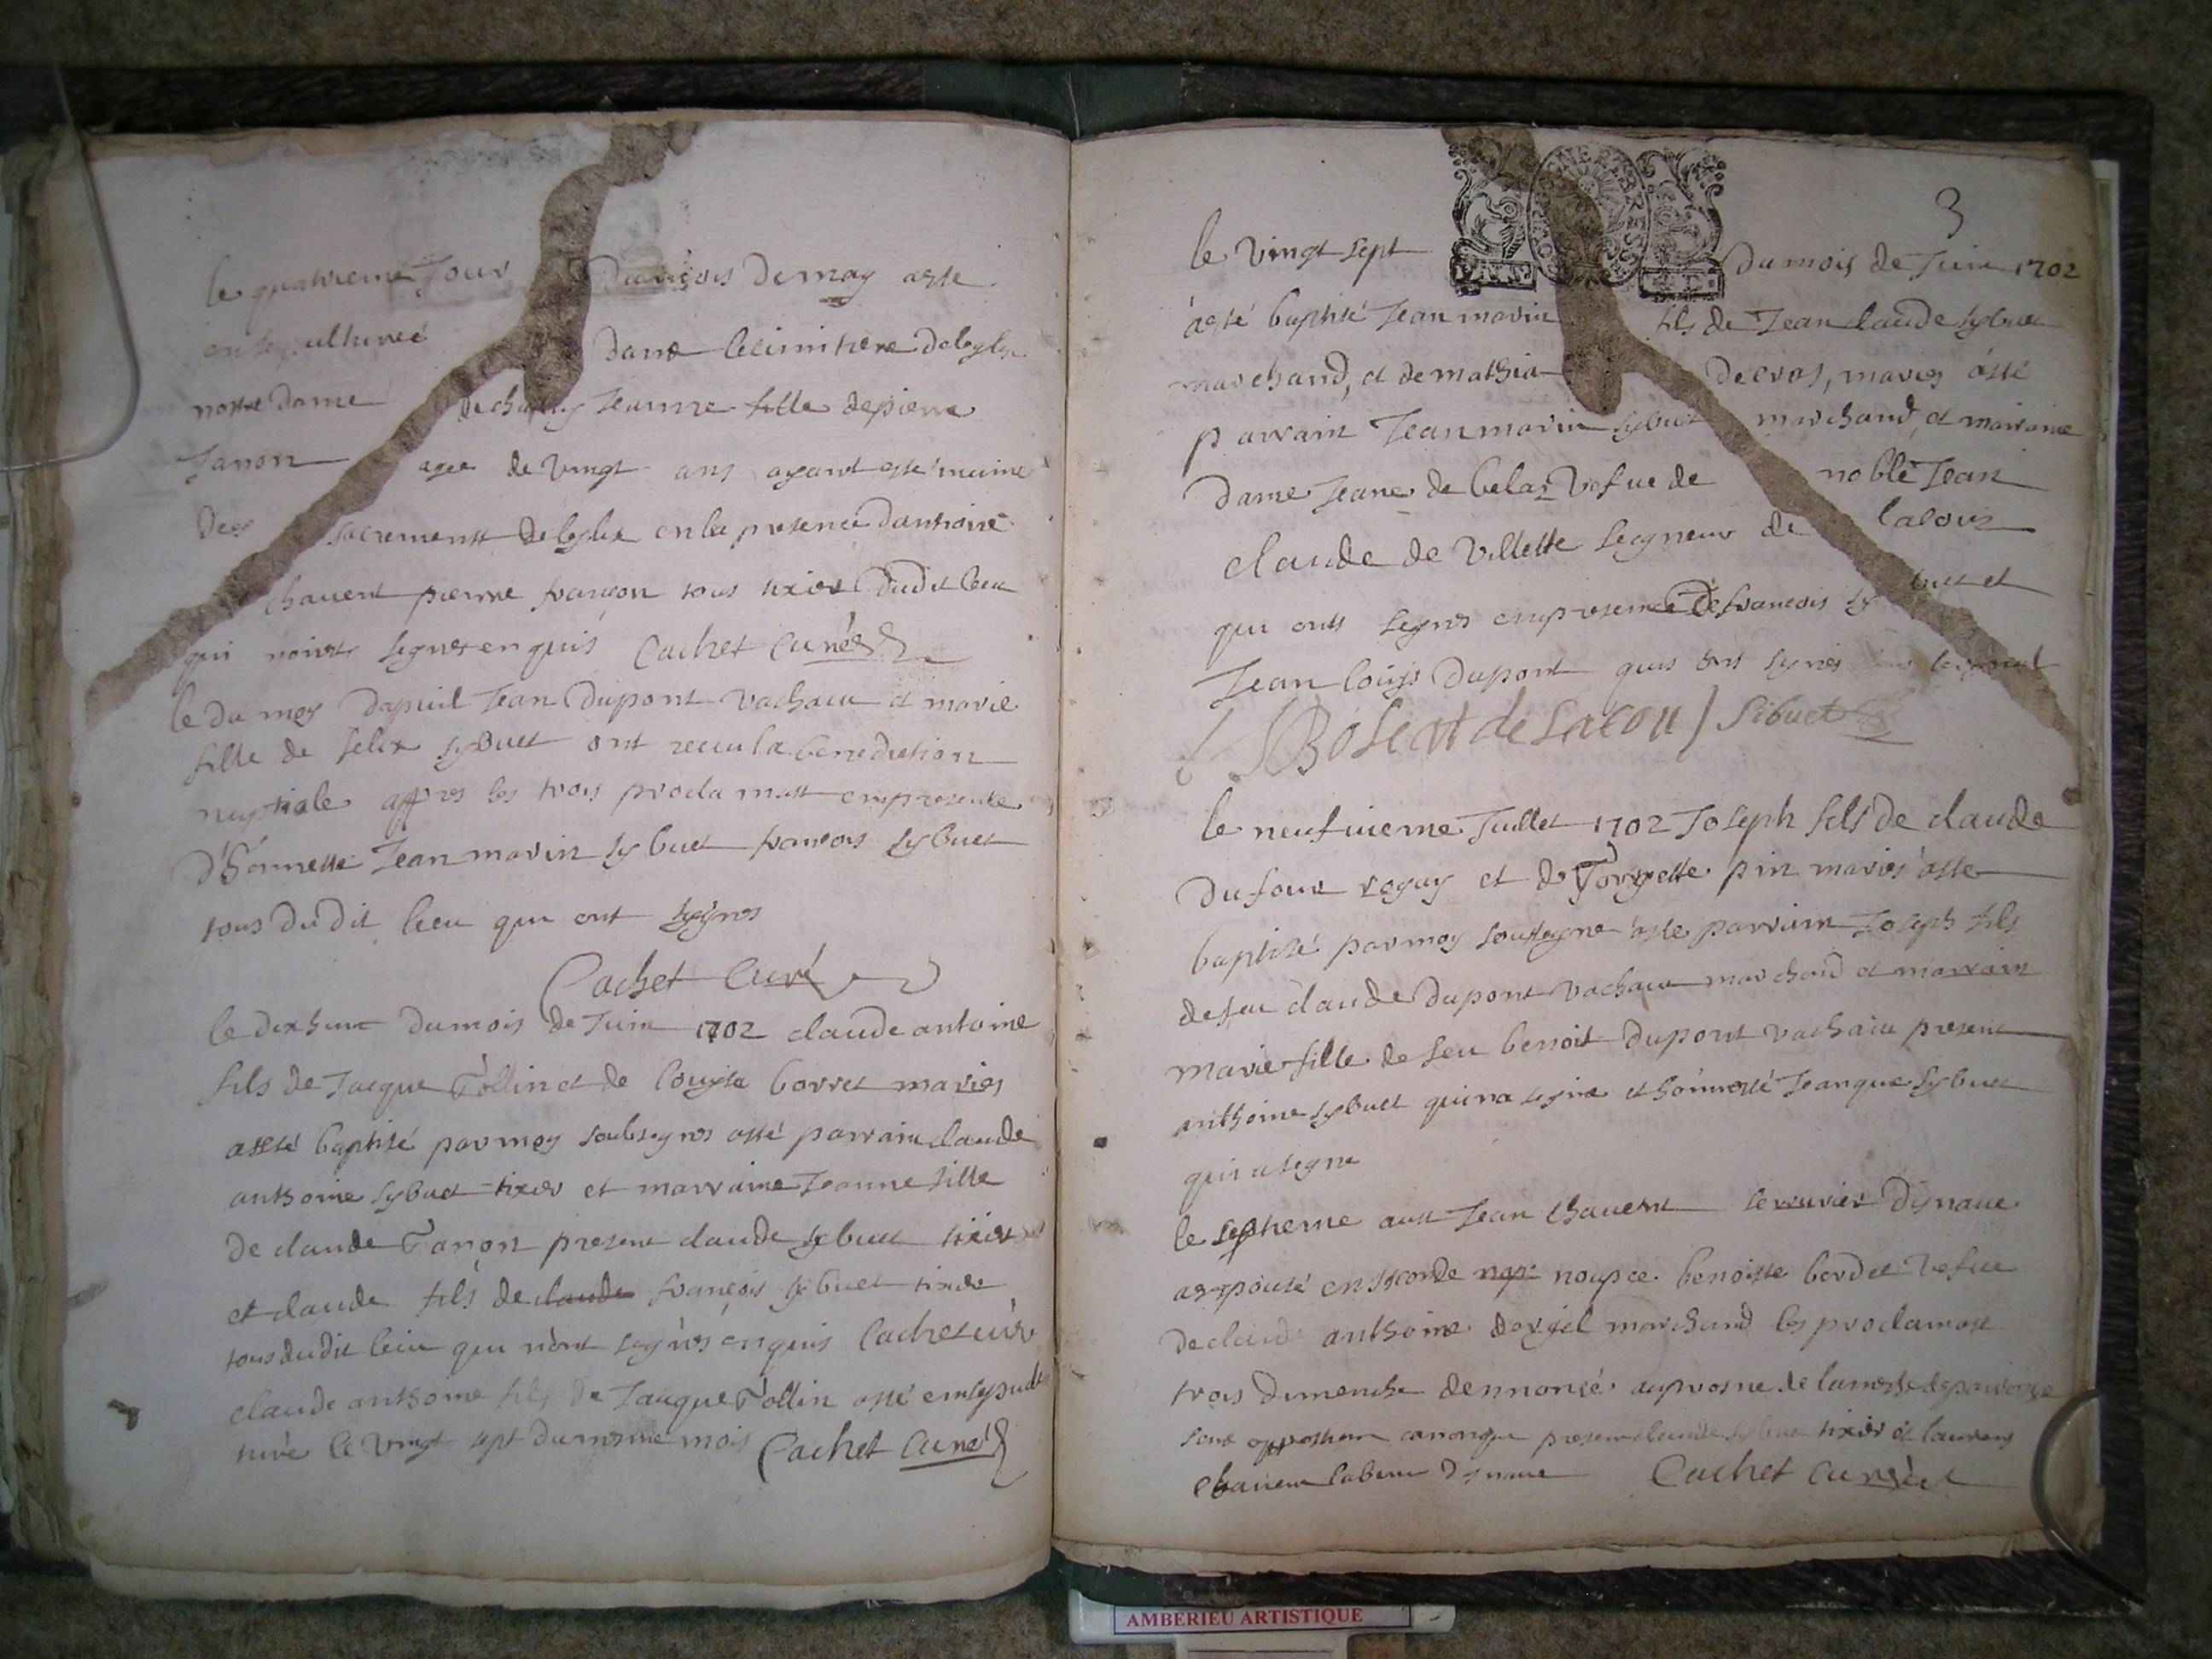 le quatrieme Jour de may aste
ensepulturee dans le cimitiere
nostre dame Jeanne fille de pierre
Janon agee de vingt ans ayant este
des sacrements en la presence dantoine
chauent pierre françon tous tixier dudit lieu
qui nont signes enquis Cachet curé
le du moy dapuril Jean Dupont vachau et marie
fille de felix sybuet ont receu la benediction
nuptiale appres les trois proclamatt empresence
d'honneste Jean marin sybuet francois sybuet
tous du dit lieu qui ont signes
Cachet Curé
le dixhuit du mois de Juin 1702 claude antoine
fils de Jacque Tollin et de louyse borret maries
a esté baptisé par moy soubsignes asté parrain claude
anthoine sybuet tixier et marraine Jeanne fille
de claude Janon present claude sybuet tixier
et claude fils de claude françois sybuet tixier
tous dudit lieu qui n'ont signés enquis Cachet curé
claude anthoine fils de Jauque Tollin asté ensepul
turé le vingt sept du mesme mois Cachet Curé
3
le vingt sept du mois de Juin 1702
a esté baptisé Jean marin fils de Jean claude sybuet
marchand, et de mathia decros, maries asté
parrain Jean marin sybuet marchand, et marraine
dame Jeane de belas vefue de noble Jean
claude de villette segneur de lacoux
qui onts segnes empresence de francois sybuet et
Jean louys dupont
de Lacou Sibuet
le neufuieme Juillet 1702 Joseph fils de claude
dufour et de pin maries asté
baptisé par moy soussegne aste parrain Joseph fils
de feu claude dupont vachau marchand et marrain
marie fille de feu benoit dupont vachau present
anthoine sybuet qui na segne et honnesté sybuet
qui a segne
le septieme aust Jean Chauent dynaue
a espousé en seconde nop noupce benoiste bordet vefue
de claude anthoine marchand les proclamatt
trois dimenche dennoncé au prosne de la messe de
sans opposition canonique present claude sybuet tixier et laurens
Chauent Cachet curé
AMBERIEU ARTISTIQUE